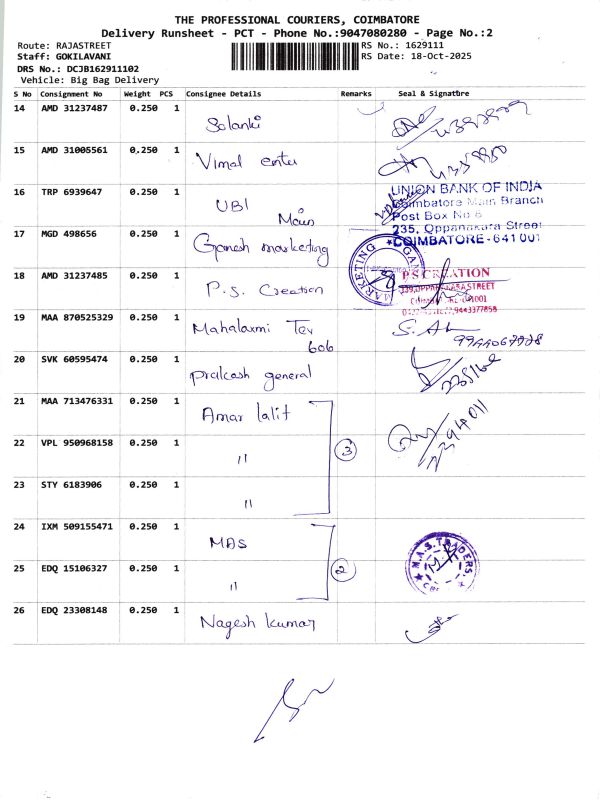 THE PROFESSIONAL COURIERS, COIMBATORE
Delivery Runsheet - PCT - Phone No.:9047080280 - Page No.:2
Route: RAJASTREET
RS No.: 1629111
Staff: GOKILAVANI
RS Date: 18-Oct-2025
DRS No.: DCJB162911102
Vehicle: Big Bag Delivery
S No Consignment No Weight PCS Consignee Details Remarks Seal & Signature
14 AMD 31237487 0.250 1 Solanki
15 AMD 31005561 0.250 1 Vimal enter
16 TRP 6939647 0.250 1 UBI Main
UNION BANK OF INDIA
Coimbatore Main Branch
Post Box No 6
235, Oppanakara Street
COIMBATORE - 641 001
17 MGD 498656 0.250 1 Ganesh marketing
MARKETING
18 AMD 31237485 0.250 1 P.S. Creation
P S CREATION
19 MAA 870525329 0.250 1 Mahalaxmi Tex 606
20 SVK 60595474 0.250 1 Prakash general
21 MAA 713476331 0.250 1 Amar lalit
22 VPL 950968158 0.250 1 " 3
23 STY 6183906 0.250 1 "
24 IXM 509155471 0.250 1 MAS
M.A.S. TRADERS
25 EDQ 15106327 0.250 1 " 2
26 EDQ 23308148 0.250 1 Nagesh kumar